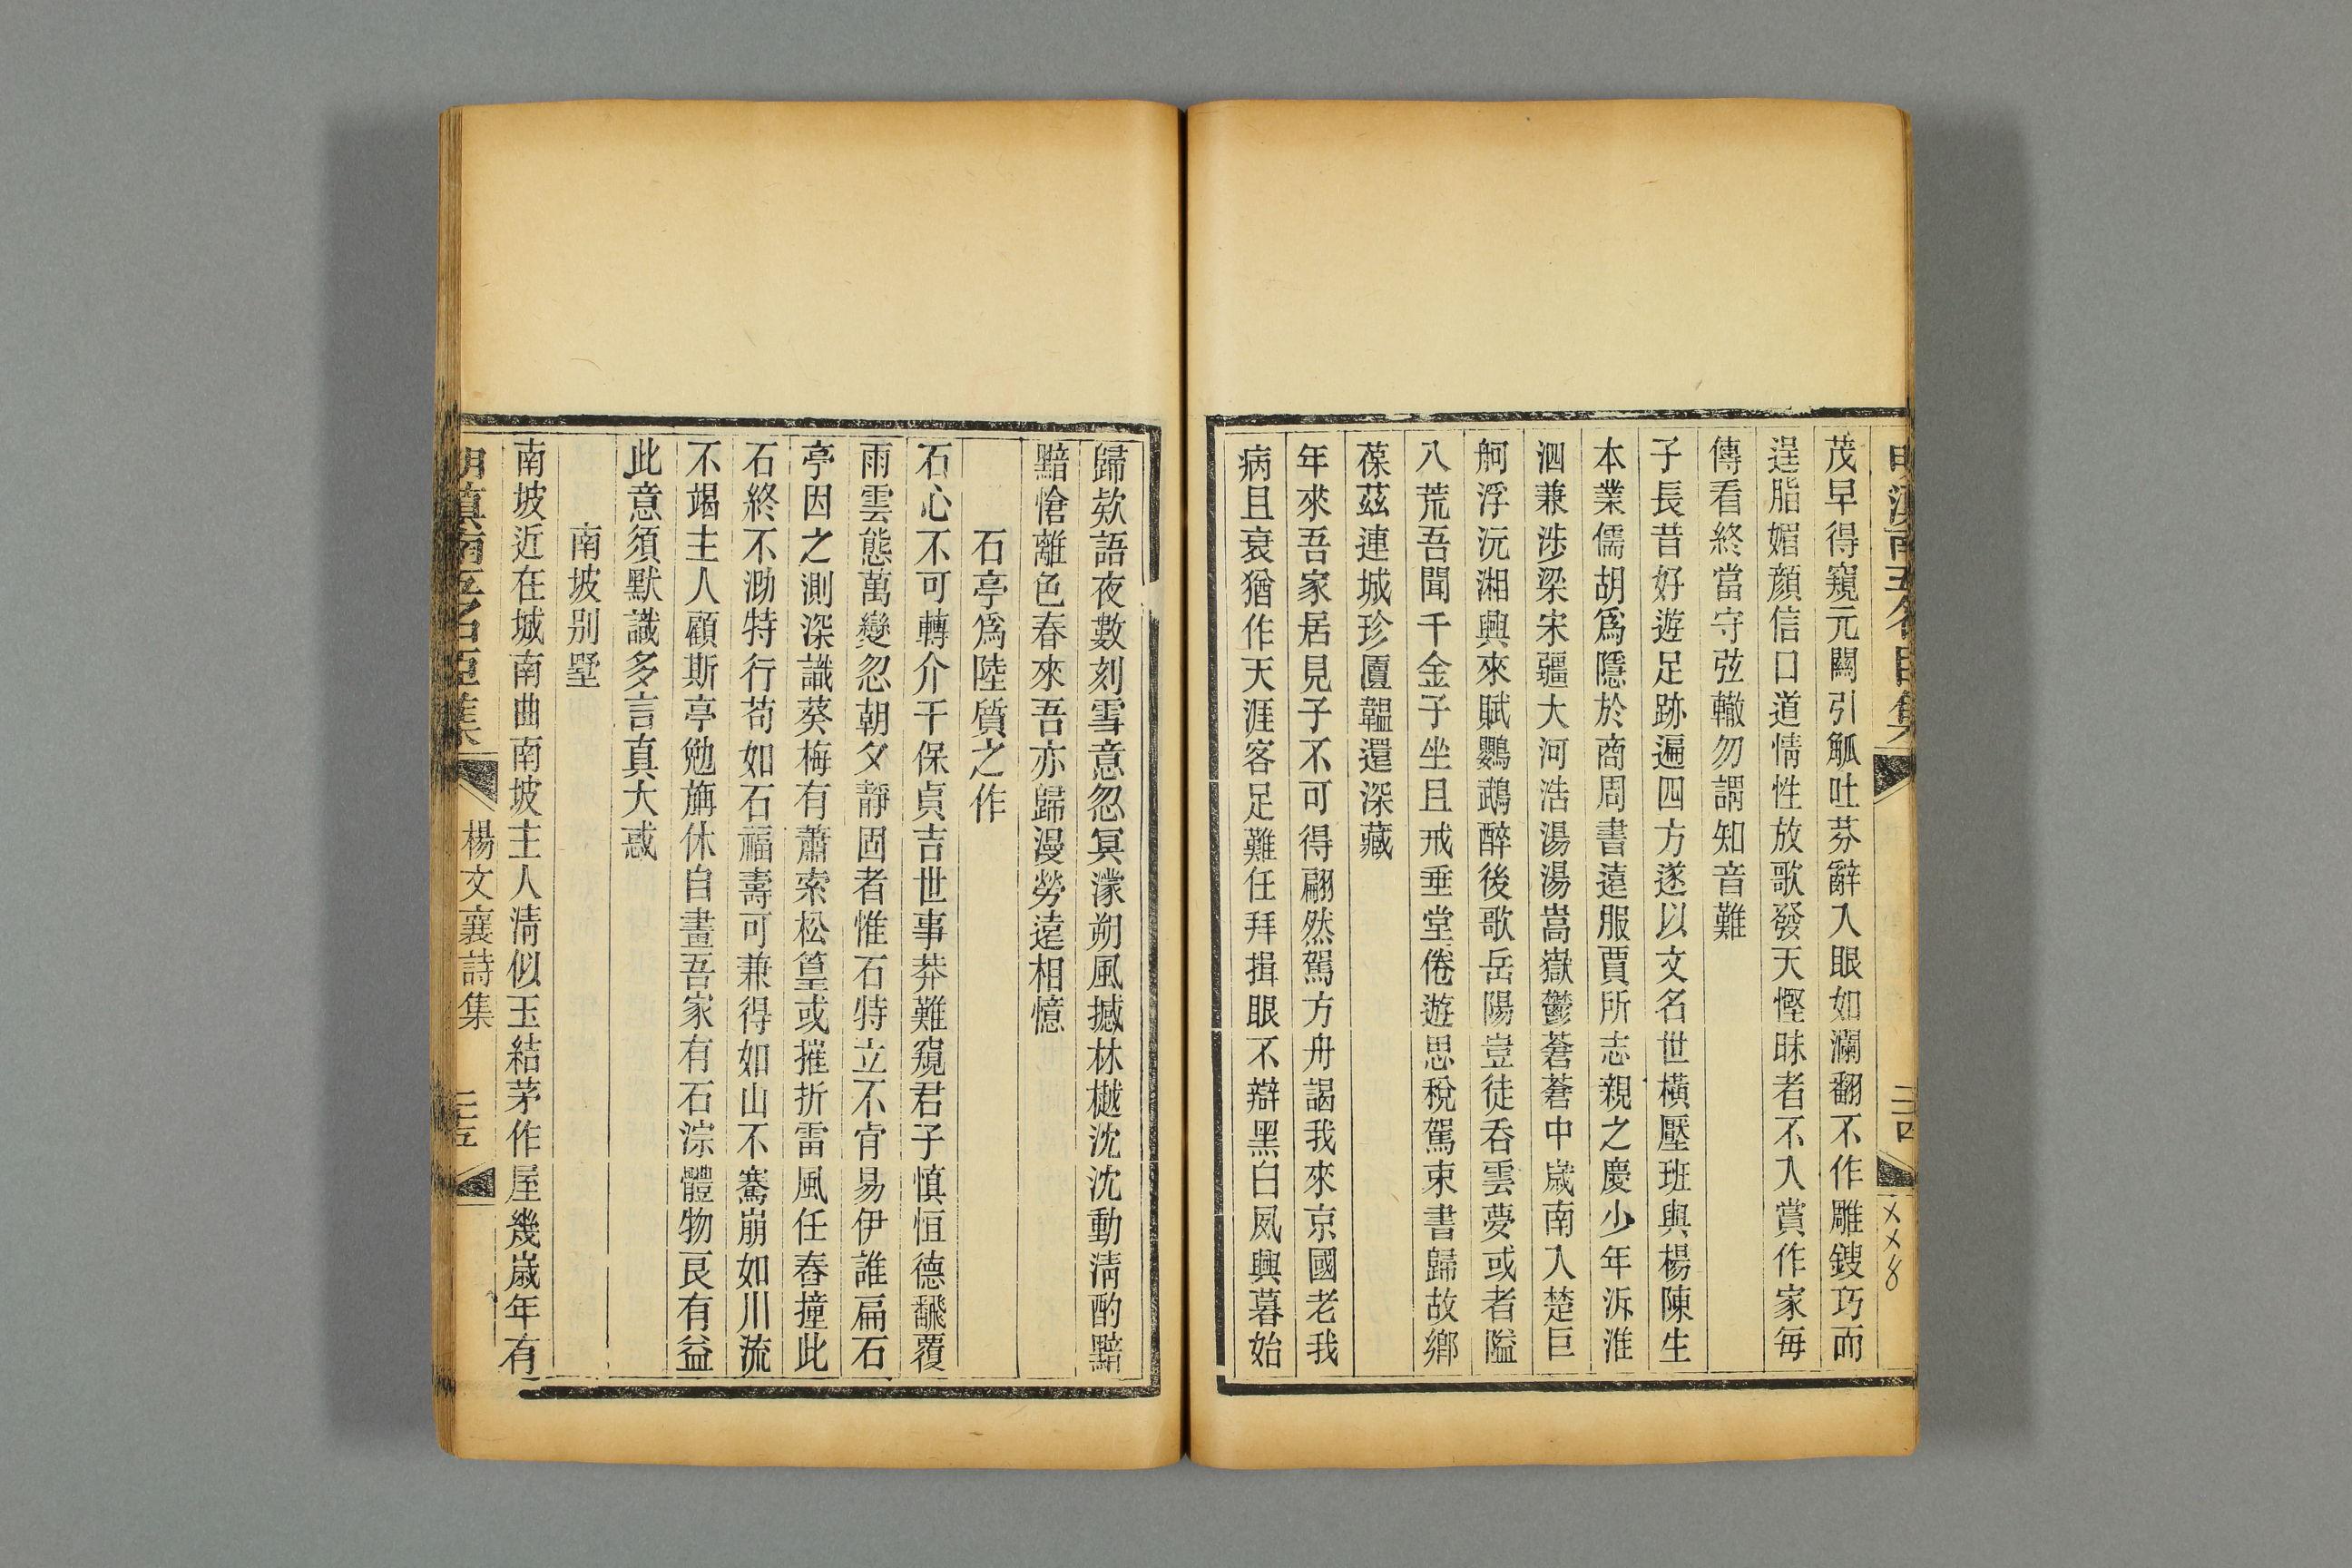 茂早得窺元闗引觚吐芬辭入眼如瀾翻不作雕鎪巧而
逞脂媚顔信口道情性放歌發天慳昧者不入賞作家每
傳看終當守弦轍勿謂知音難
子長昔好遊足跡遍四方遂以文名世橫壓班與楊陳生
本業儒胡爲隱於商周書遠服賈所志親之慶少年泝淮
泗兼涉梁宋疆大河浩湯湯嵩嶽鬱蒼蒼中歲南入楚巨
舸浮沅湘興來賦鸚鵡醉後歌岳陽豈徒吞雲夢或者隘
八荒吾聞千金子坐且戒垂堂倦遊思稅駕束書歸故鄉
葆茲連城珍匵韞還深藏
年來吾家居見子不可得翩然駕方舟謁我來京國老我
病且衰猶作天涯客足難任拜揖眼不辯黑白夙興暮始
歸欵語夜數刻雪意忽冥濛朔風撼林樾沈沈動淸酌黯
黯愴離色春來吾亦歸漫勞遠相憶
石亭爲陸質之作
石心不可轉介干保貞吉世事莽難窺君子愼恒德飜覆
雨雲態萬變忽朝夕靜固者惟石特立不肯易伊誰扁石
亭因之測深識葵梅有蕭索松篁或摧折雷風任舂撞此
石終不泐特行苟如石福壽可兼得如山不騫崩如川流
不竭主人顧斯亭勉旃休自畫吾家有石淙體物良有益
此意須默識多言真大惑
南坡别墅
南坡近在城南曲南坡主人淸似玉結茅作屋幾歲年有
明滇南五名臣集
楊文襄詩集
二十五